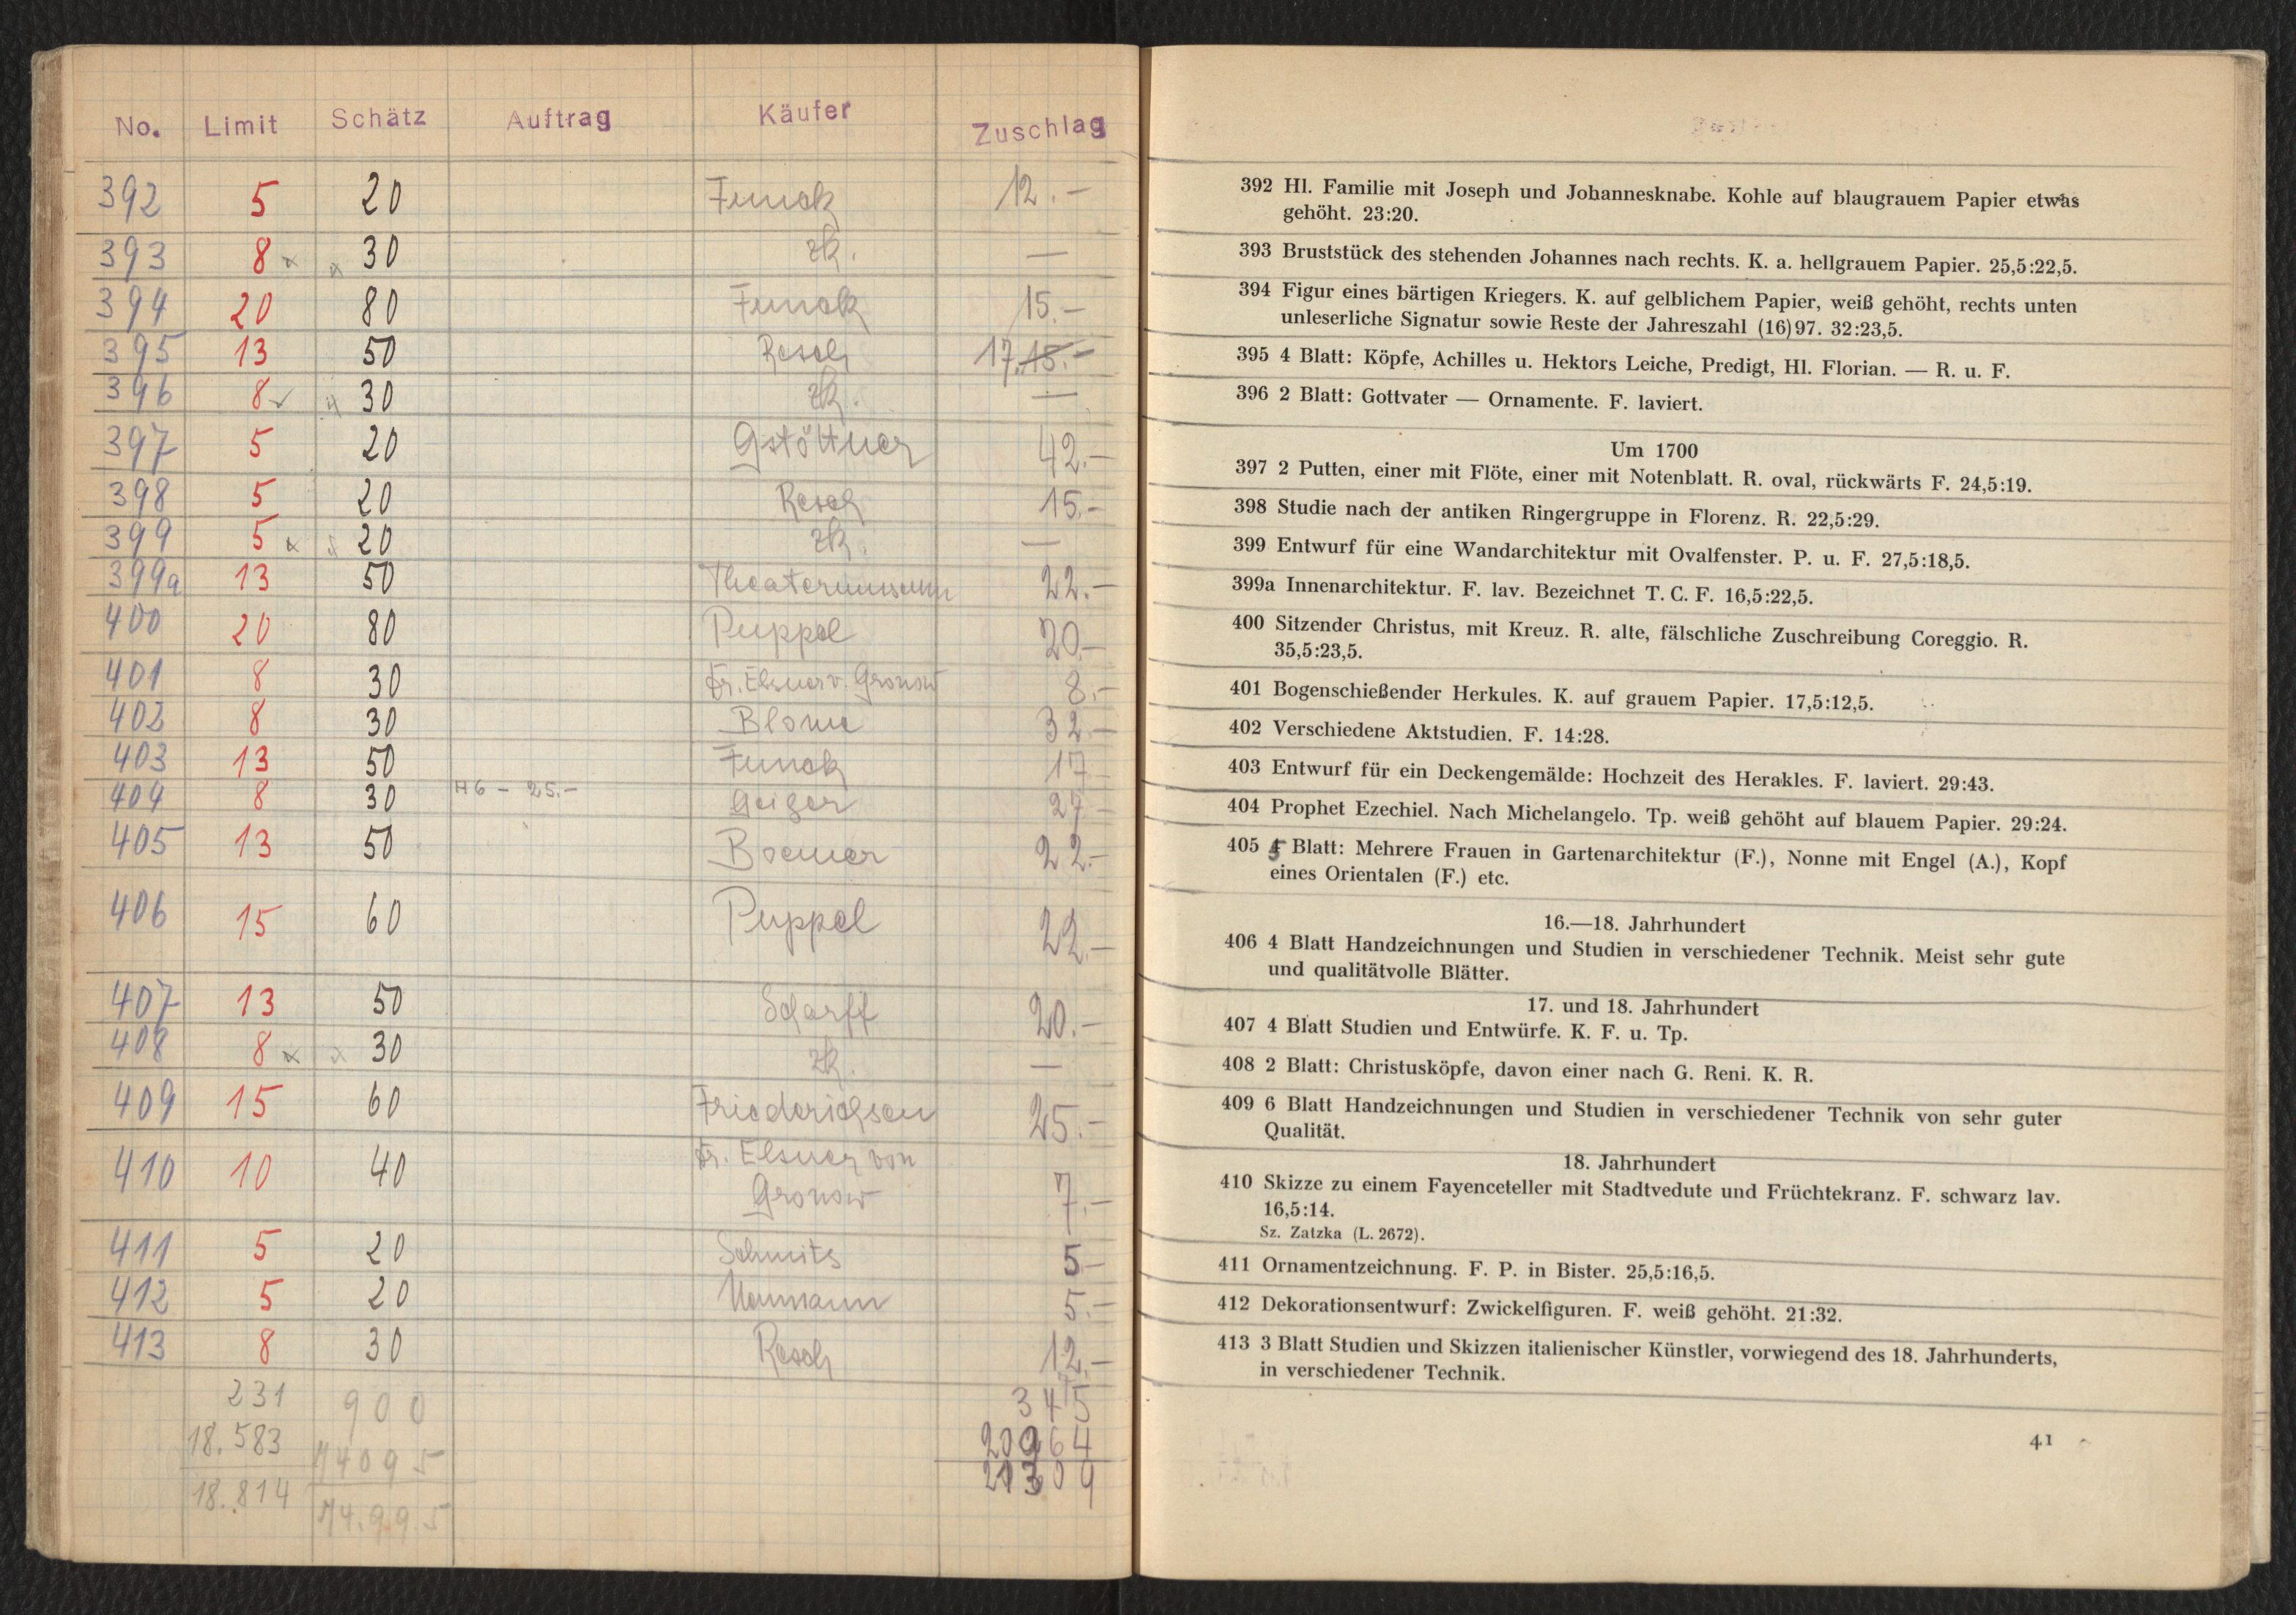 No. Limit Schätz Auftrag Käufer Zuschlag
392 5 20 Funck 12.-
393 8 x x 30 zk. —
394 20 80 Funck 15.-
395 13 50 Resch 17.15.-
396 8 30 zk. —
397 5 20 Gstöttner 42.-
398 5 20 Resch 15.-
399 5 x x 20 zk. —
399a 13 50 Theatermuseum 22.-
400 20 80 Puppel 20.-
401 8 30 Fr. Elsner v. Gronow 8.-
402 8 30 Blome 32.-
403 13 50 Funck 17.-
404 8 30 H6 - 25.- Geiger 27.-
405 13 50 Boerner 22.-
406 15 60 Puppel 22.-
407 13 50 Scharff 20.-
408 8 x x 30 zk. —
409 15 60 Friederichsen 25.-
410 10 40 Fr. Elsner von
Gronow 7.-
411 5 20 Schmits 5.-
412 5 20 Neumann 5.-
413 8 30 Resch 12.-
231 900 345
18.583 74095 20964
18.814 74.995 21309
392 Hl. Familie mit Joseph und Johannesknabe. Kohle auf blaugrauem Papier etwas
gehöht. 23:20.
393 Bruststück des stehenden Johannes nach rechts. K. a. hellgrauem Papier. 25,5:22,5.
394 Figur eines bärtigen Kriegers. K. auf gelblichem Papier, weiß gehöht, rechts unten
unleserliche Signatur sowie Reste der Jahreszahl (16)97. 32:23,5.
395 4 Blatt: Köpfe, Achilles u. Hektors Leiche, Predigt, Hl. Florian. — R. u. F.
396 2 Blatt: Gottvater — Ornamente. F. laviert.
Um 1700
397 2 Putten, einer mit Flöte, einer mit Notenblatt. R. oval, rückwärts F. 24,5:19.
398 Studie nach der antiken Ringergruppe in Florenz. R. 22,5:29.
399 Entwurf für eine Wandarchitektur mit Ovalfenster. P. u. F. 27,5:18,5.
399a Innenarchitektur. F. lav. Bezeichnet T. C. F. 16,5:22,5.
400 Sitzender Christus, mit Kreuz. R. alte, fälschliche Zuschreibung Coreggio. R.
35,5:23,5.
401 Bogenschießender Herkules. K. auf grauem Papier. 17,5:12,5.
402 Verschiedene Aktstudien. F. 14:28.
403 Entwurf für ein Deckengemälde: Hochzeit des Herakles. F. laviert. 29:43.
404 Prophet Ezechiel. Nach Michelangelo. Tp. weiß gehöht auf blauem Papier. 29:24.
405 5 Blatt: Mehrere Frauen in Gartenarchitektur (F.), Nonne mit Engel (A.), Kopf
eines Orientalen (F.) etc.
16.—18. Jahrhundert
406 4 Blatt Handzeichnungen und Studien in verschiedener Technik. Meist sehr gute
und qualitätvolle Blätter.
17. und 18. Jahrhundert
407 4 Blatt Studien und Entwürfe. K. F. u. Tp.
408 2 Blatt: Christusköpfe, davon einer nach G. Reni. K. R.
409 6 Blatt Handzeichnungen und Studien in verschiedener Technik von sehr guter
Qualität.
18. Jahrhundert
410 Skizze zu einem Fayenceteller mit Stadtvedute und Früchtekranz. F. schwarz lav.
16,5:14.
Sz. Zatzka (L. 2672).
411 Ornamentzeichnung. F. P. in Bister. 25,5:16,5.
412 Dekorationsentwurf: Zwickelfiguren. F. weiß gehöht. 21:32.
413 3 Blatt Studien und Skizzen italienischer Künstler, vorwiegend des 18. Jahrhunderts,
in verschiedener Technik.
41